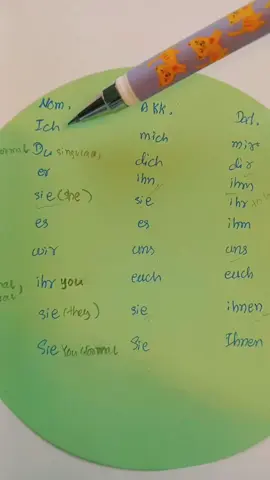 Nom. AKK. Dat.
Ich mich mir
Du singular, dich dir
er ihn ihm
sie (she) sie ihr
es es ihm
wir uns uns
ihr you euch euch
sie (they) sie ihnen
Sie You formal Sie Ihnen